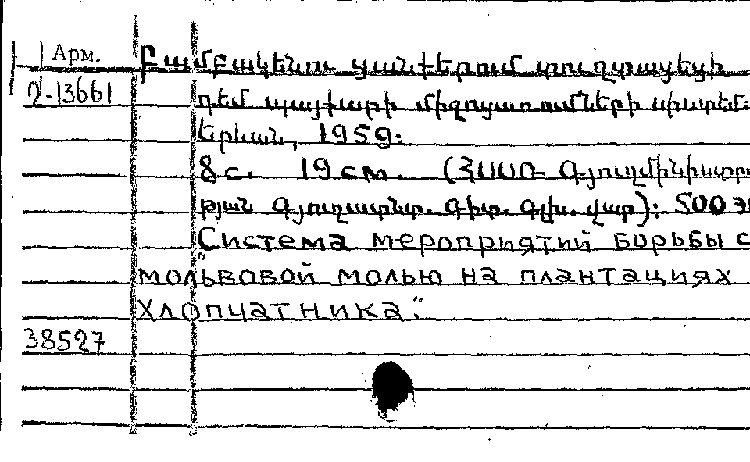 Арм.
Բամբակենու ցանքերում
Ղ-13661
դեմ պայքարի միջոցառումների սիստեմ
Երևան, 1959:
8 с. 19 см. (ՀՍՍՌ Գյուղմինիստրու
թյան Գյուղատնտ. գիտ. գլխ. վար): 500 э
"Система мероприятий борьбы с
мольвовой молью на плантациях
хлопчатника".
38527